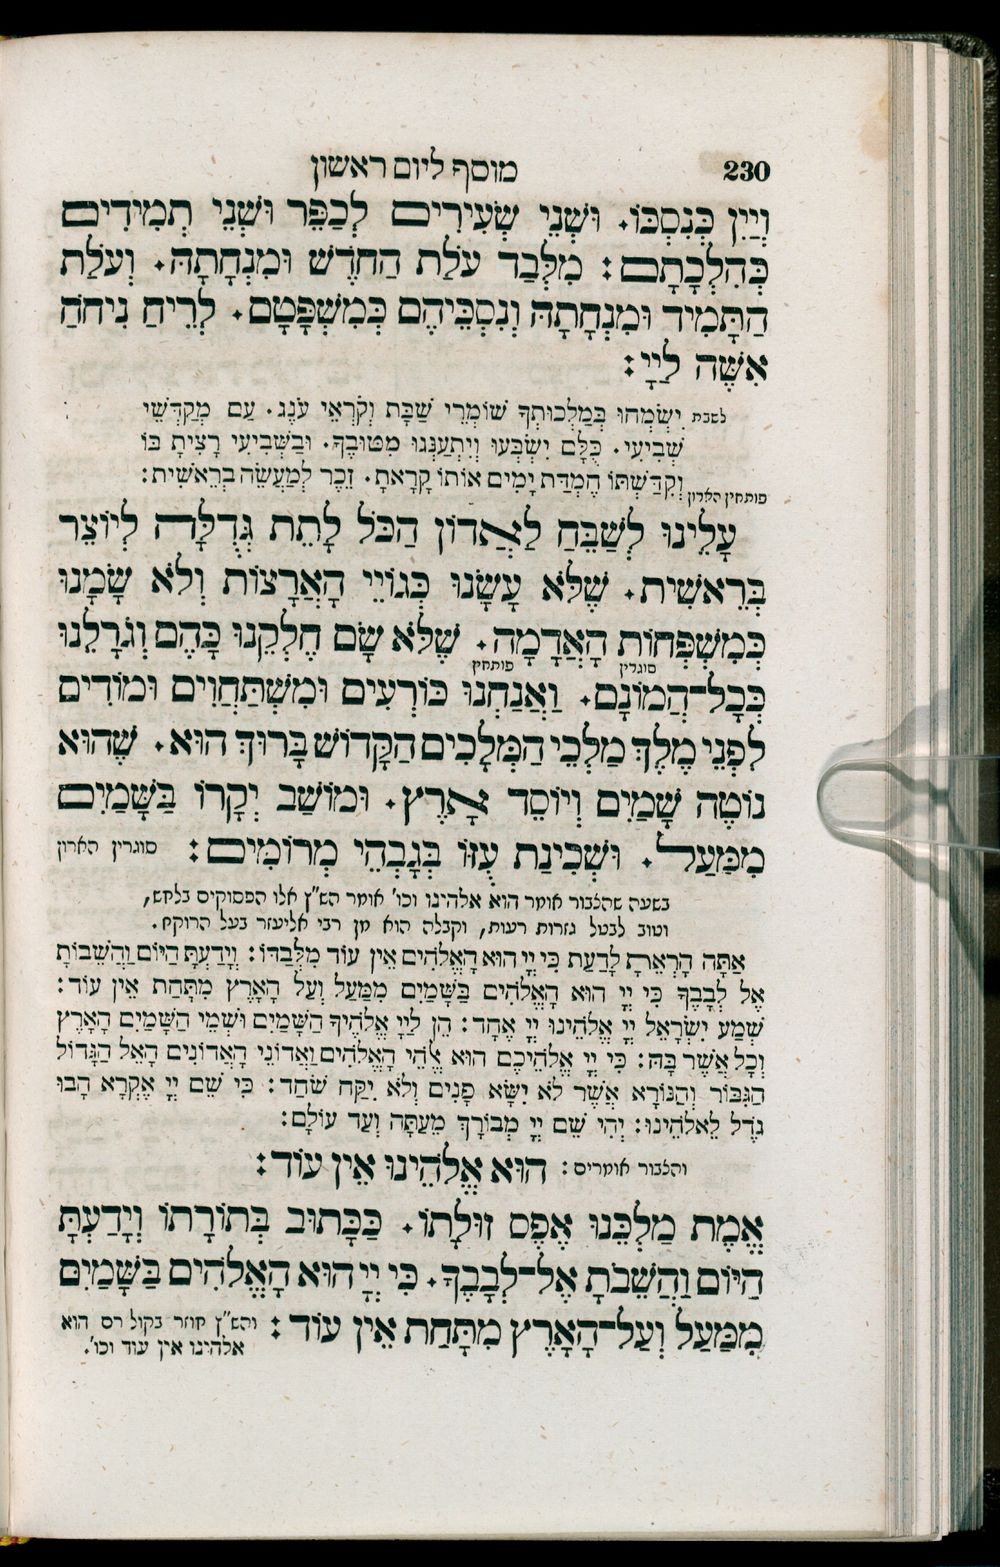 230
מוסף ליום ראשון
וְיַיִן כְּנִסְכּוֹ. וּשְׁנֵי שְׂעִירִים לְכַפֵּר וּשְׁנֵי תְמִידִים
כְּהִלְכָתָם: מִלְּבַד עֹלַת הַחֹדֶשׁ וּמִנְחָתָהּ. וְעֹלַת
הַתָּמִיד וּמִנְחָתָהּ וְנִסְכֵּיהֶם כְּמִשְׁפָּטָם. לְרֵיחַ נִיחֹחַ
אִשֶּׁה לַיְיָ:
לשבת יִשְׂמְחוּ בְּמַלְכוּתְךָ שׁוֹמְרֵי שַׁבָּת וְקֹרְאֵי עֹנֶג. עַם מְקַדְּשֵׁי
שְׁבִיעִי. כֻּלָּם יִשְׂבְּעוּ וְיִתְעַנְּגוּ מִטּוּבֶךָ. וּבַשְּׁבִיעִי רָצִיתָ בּוֹ
וְקִדַּשְׁתּוֹ חֶמְדַּת יָמִים אוֹתוֹ קָרָאתָ. זֵכֶר לְמַעֲשֵׂה בְרֵאשִׁית:
פותחין הארון
עָלֵינוּ לְשַׁבֵּחַ לַאֲדוֹן הַכֹּל לָתֵת גְּדֻלָּה לְיוֹצֵר
בְּרֵאשִׁית. שֶׁלֹּא עָשָׂנוּ כְּגוֹיֵי הָאֲרָצוֹת וְלֹא שָׂמָנוּ
כְּמִשְׁפְּחוֹת הָאֲדָמָה. שֶׁלֹּא שָׂם חֶלְקֵנוּ כָּהֶם וְגֹרָלֵנוּ
סוגרין פותחין
כְּכָל־הֲמוֹנָם. וַאֲנַחְנוּ כּוֹרְעִים וּמִשְׁתַּחֲוִים וּמוֹדִים
לִפְנֵי מֶלֶךְ מַלְכֵי הַמְּלָכִים הַקָּדוֹשׁ בָּרוּךְ הוּא. שֶׁהוּא
נוֹטֶה שָׁמַיִם וְיוֹסֵד אָרֶץ. וּמוֹשַׁב יְקָרוֹ בַּשָּׁמַיִם
מִמַּעַל. וּשְׁכִינַת עֻזּוֹ בְּגָבְהֵי מְרוֹמִים: סוגרין הארון
בשעה שהצבור אומר הוא אלהינו וכו' אומר הש"ץ אלו הפסוקים בלחש,
וטוב לבטל גזרות רעות, וקבלה הוא מן רבי אליעזר בעל הרוקח.
אַתָּה הָרְאֵתָ לָדַעַת כִּי יְיָ הוּא הָאֱלֹהִים אֵין עוֹד מִלְּבַדּוֹ: וְיָדַעְתָּ הַיּוֹם וַהֲשֵׁבוֹתָ
אֶל לְבָבֶךָ כִּי יְיָ הוּא הָאֱלֹהִים בַּשָּׁמַיִם מִמַּעַל וְעַל הָאָרֶץ מִתָּחַת אֵין עוֹד:
שְׁמַע יִשְׂרָאֵל יְיָ אֱלֹהֵינוּ יְיָ אֶחָד: הֵן לַיְיָ אֱלֹהֶיךָ הַשָּׁמַיִם וּשְׁמֵי הַשָּׁמַיִם הָאָרֶץ
וְכָל אֲשֶׁר בָּהּ: כִּי יְיָ אֱלֹהֵיכֶם הוּא אֱלֹהֵי הָאֱלֹהִים וַאֲדוֹנֵי הָאֲדוֹנִים הָאֵל הַגָּדוֹל
הַגִּבּוֹר וְהַנּוֹרָא אֲשֶׁר לֹא יִשָּׂא פָנִים וְלֹא יִקַּח שֹׁחַד: כִּי שֵׁם יְיָ אֶקְרָא הָבוּ
גֹדֶל לֵאלֹהֵינוּ: יְהִי שֵׁם יְיָ מְבוֹרָךְ מֵעַתָּה וְעַד עוֹלָם:
והצבור אומרים: הוּא אֱלֹהֵינוּ אֵין עוֹד:
אֱמֶת מַלְכֵּנוּ אֶפֶס זוּלָתוֹ. כַּכָּתוּב בְּתוֹרָתוֹ וְיָדַעְתָּ
הַיּוֹם וַהֲשֵׁבֹתָ אֶל־לְבָבֶךָ. כִּי יְיָ הוּא הָאֱלֹהִים בַּשָּׁמַיִם
מִמַּעַל וְעַל־הָאָרֶץ מִתָּחַת אֵין עוֹד: והש"ץ חוזר בקול רם הוא
אלהינו אין עוד וכו'.